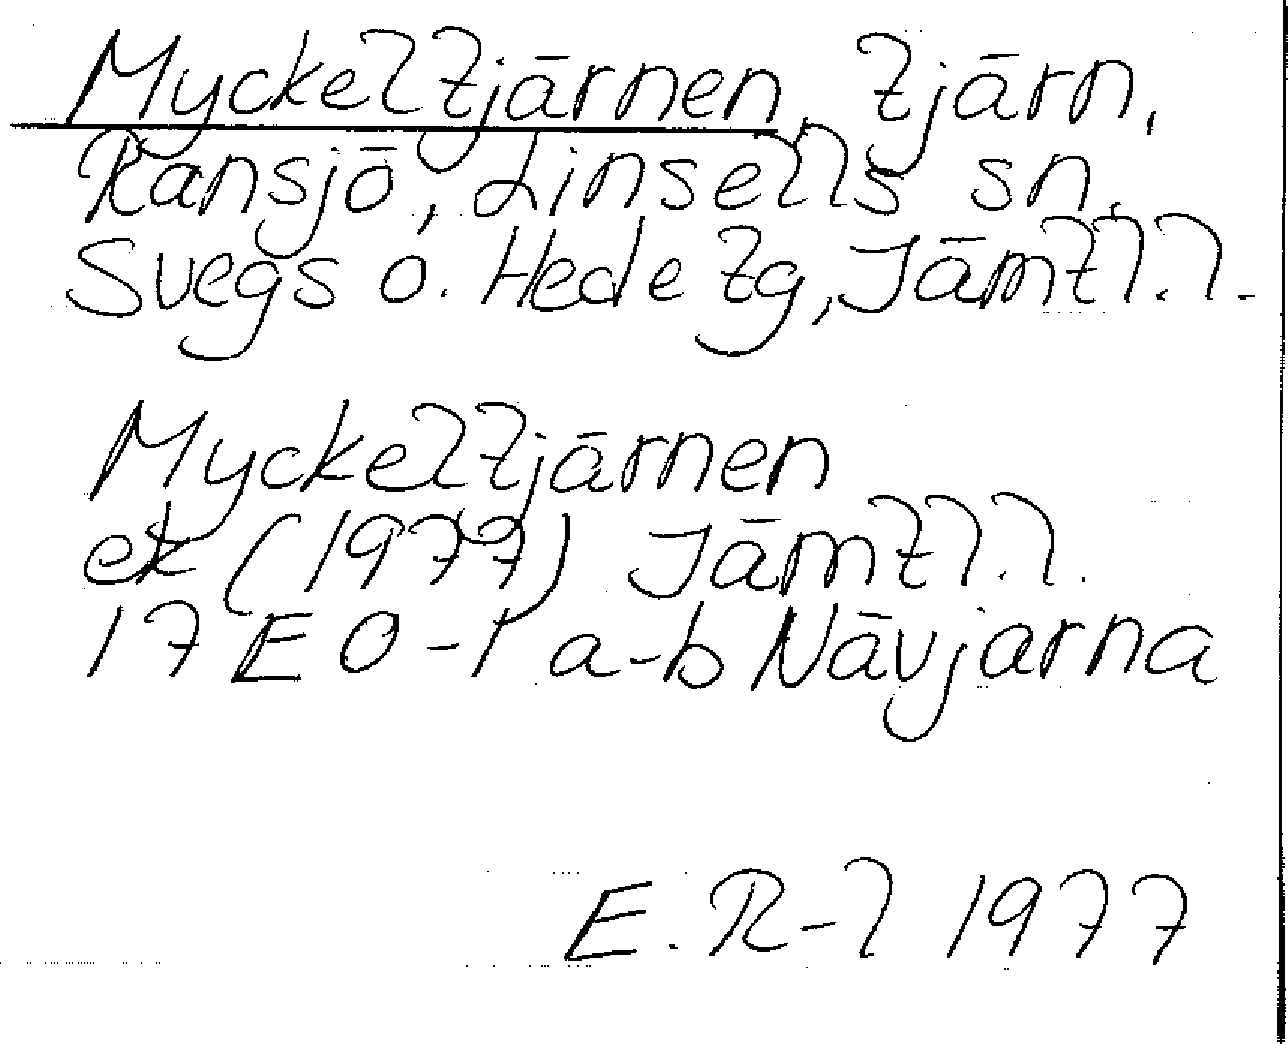 Myckeltjärnen, tjärn,
Ransjö, Linsells sn,
Svegs o. Hede tg, Jämtl.l.
Myckeltjärnen
ek (1977) Jämtl.l.
17 E 0-1 a-b Nävjarna
E. R-l 1977